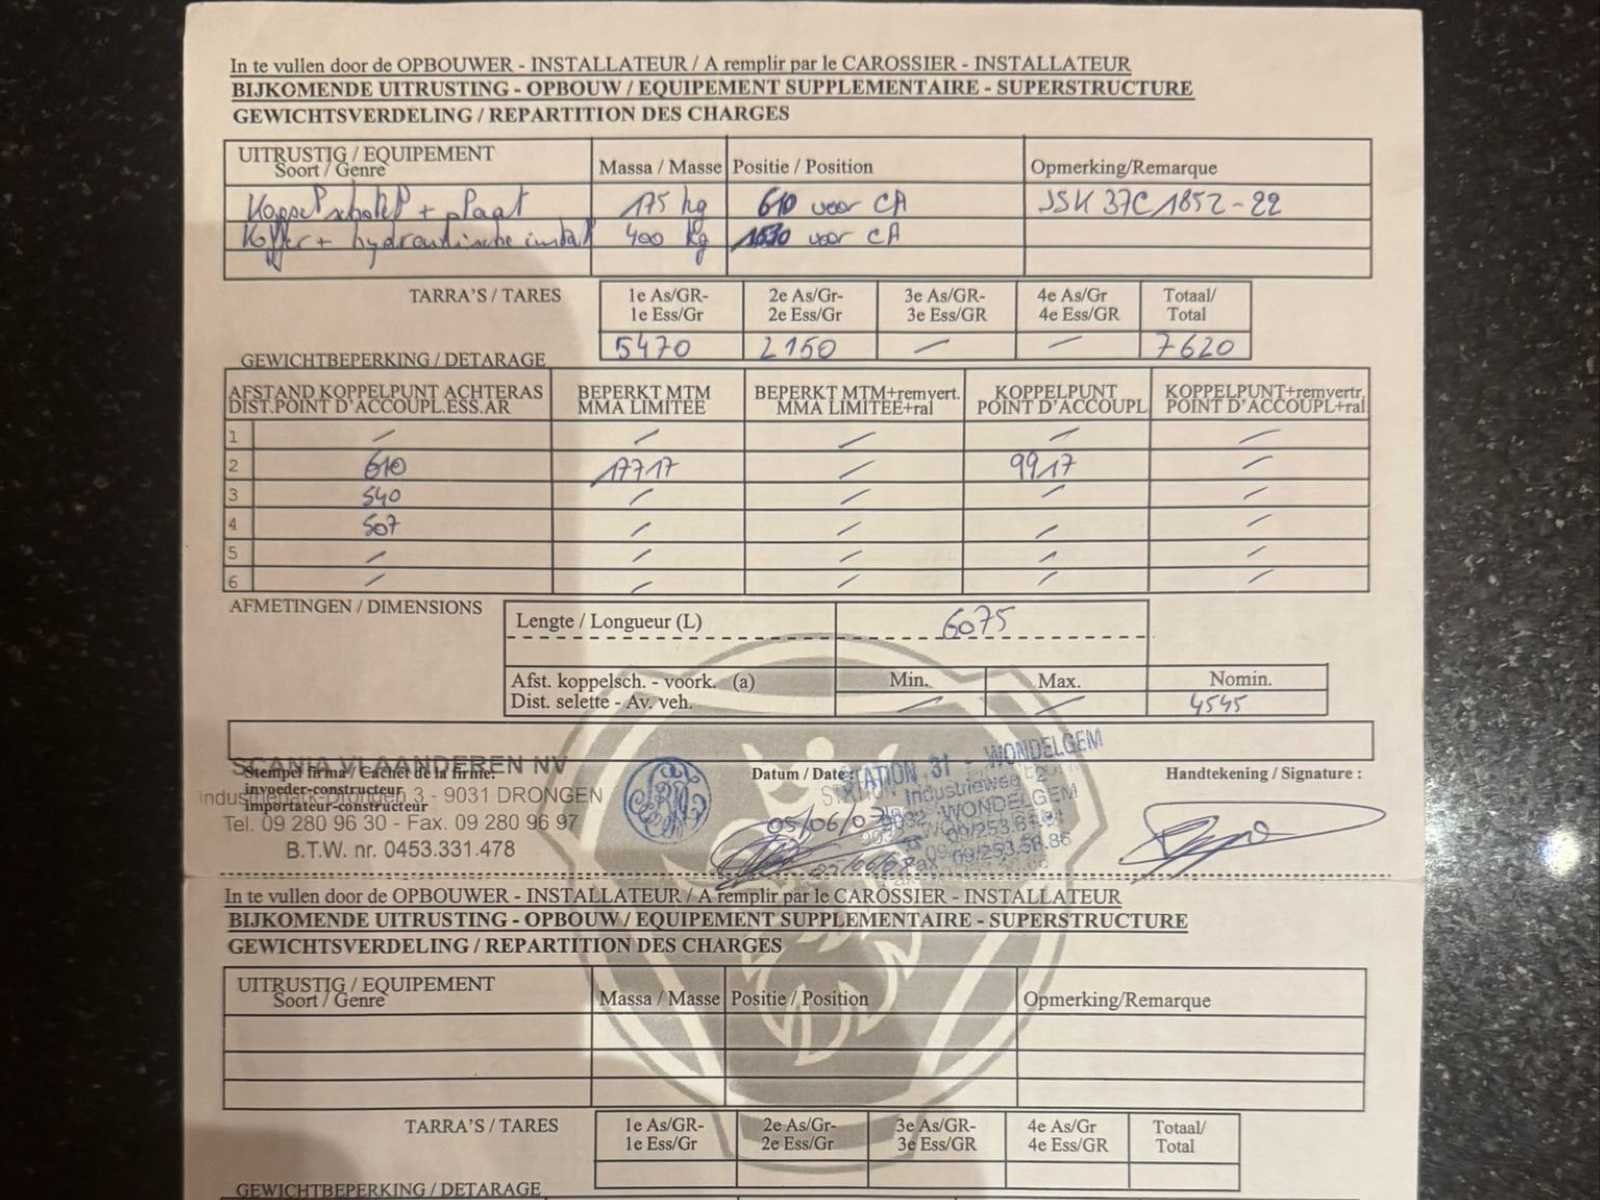 In te vullen door de OPBOUWER - INSTALLATEUR / A remplir par le CAROSSIER - INSTALLATEUR
BIJKOMENDE UITRUSTING - OPBOUW / EQUIPEMENT SUPPLEMENTAIRE - SUPERSTRUCTURE
GEWICHTSVERDELING / REPARTITION DES CHARGES
UITRUSTIG / EQUIPEMENT Massa / Masse Positie / Position Opmerking/Remarque
Soort / Genre
Koppelschotel + plaat 175 kg 610 voor CA JSK 37C 185Z-22
Koffer + hydraulische install 400 kg 1630 voor CA
TARRA'S / TARES 1e As/GR- 2e As/Gr- 3e As/GR- 4e As/Gr Totaal/
1e Ess/Gr 2e Ess/Gr 3e Ess/GR 4e Ess/GR Total
5470 2150 — — 7620
GEWICHTBEPERKING / DETARAGE
AFSTAND KOPPELPUNT ACHTERAS BEPERKT MTM BEPERKT MTM+remvert. KOPPELPUNT KOPPELPUNT+remvertr.
DIST.POINT D'ACCOUPL.ESS.AR MMA LIMITEE MMA LIMITEE+ral POINT D'ACCOUPL POINT D'ACCOUPL+ral
1 — — — — —
2 610 17717 — 9917 —
3 540 — — — —
4 507 — — — —
5 — — — — —
6 — — — — —
AFMETINGEN / DIMENSIONS Lengte / Longueur (L) 6075
Afst. koppelsch. - voork. (a) Min. Max. Nomin.
Dist. selette - Av. veh. — — 4545
SCANIA VLAANDEREN NV
Stempel firma / Cachet de la firme: Datum / Date : STATION 31 - WONDELGEM Handtekening / Signature :
invoeder-constructeur
Industriepark-Drongen 3 - 9031 DRONGEN Industrieweg 2
importateur-constructeur 05/06/03 9032 WONDELGEM
Tel. 09 280 96 30 - Fax. 09 280 96 97 09/253.61.94
B.T.W. nr. 0453.331.478
In te vullen door de OPBOUWER - INSTALLATEUR / A remplir par le CAROSSIER - INSTALLATEUR
BIJKOMENDE UITRUSTING - OPBOUW / EQUIPEMENT SUPPLEMENTAIRE - SUPERSTRUCTURE
GEWICHTSVERDELING / REPARTITION DES CHARGES
UITRUSTIG / EQUIPEMENT Massa / Masse Positie / Position Opmerking/Remarque
Soort / Genre
TARRA'S / TARES 1e As/GR- 2e As/Gr- 3e As/GR- 4e As/Gr Totaal/
1e Ess/Gr 2e Ess/Gr 3e Ess/GR 4e Ess/GR Total
GEWICHTBEPERKING / DETARAGE